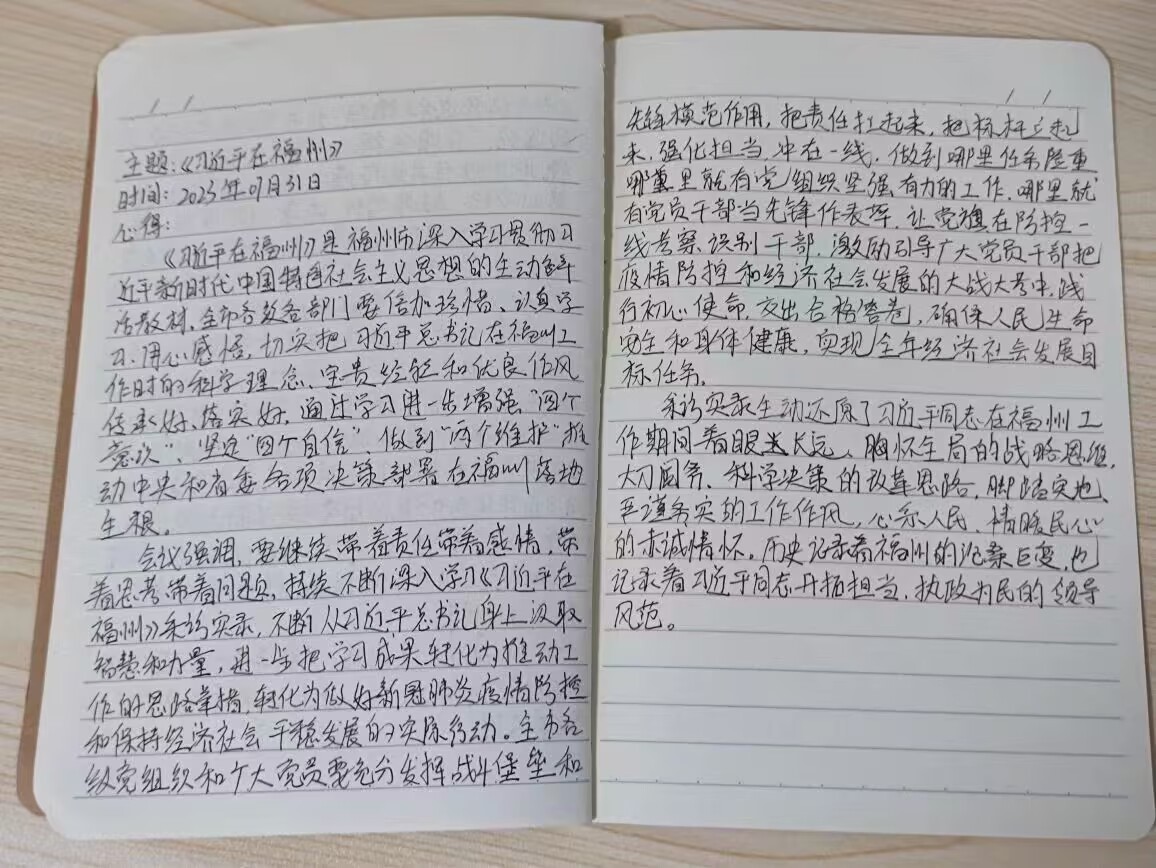 主题:《习近平在福州》
时间: 2023年07月31日
心得:
《习近平在福州》是福州市深入学习贯彻习
近平新时代中国特色社会主义思想的生动鲜
活教材,全市各级各部门要倍加珍惜、认真学
习、用心感悟,切实把习近平总书记在福州工
作时的科学理念、宝贵经验和优良作风
传承好、落实好,通过学习进一步增强“四个
意识”、坚定“四个自信”、做到“两个维护”,推
动中央和省委各项决策部署在福州落地
生根。
会议强调,要继续带着责任带着感情,带
着思考带着问题,持续不断深入学习《习近平在
福州》采访实录,不断从习近平总书记身上汲取
智慧和力量,进一步把学习成果转化为推动工
作的思路举措,转化为做好新冠肺炎疫情防控
和保持经济社会平稳发展的实际行动。全市各
级党组织和个大党员要充分发挥战斗堡垒和
先锋模范作用,把责任扛起来,把标杆立起
来,强化担当,冲在一线,做到哪里任务险重
哪里就有党组织坚强有力的工作,哪里就
有党员干部当先锋作表率,让党旗在防控一
线考察识别干部,激励引导广大党员干部把
疫情防控和经济社会发展的大战大考中,践
行初心使命,交出合格答卷,确保人民生命
安全和身体健康,实现全年经济社会发展目
标任务。
采访实录生动还原了习近平同志在福州工
作期间着眼长远、胸怀全局的战略思维,
大刀阔斧、科学决策的改革思路,脚踏实地、
严谨务实的工作作风,心系人民、情暖民心
的赤诚情怀。历史记录着福州的沧桑巨变,也
记录着习近平同志开拓担当、执政为民的领导
风范。